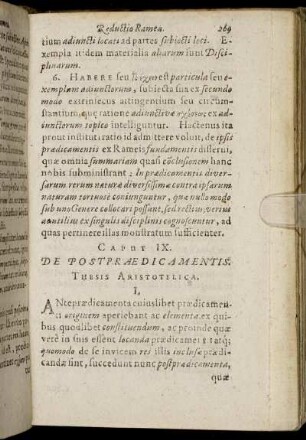 Reductio Ramea. 269
tium adiuncti locati ad partes subiecti loci. E-
xempla itidem materialia aliarum sunt Disci-
plinarum.
6. HABERE seu est particula seu e-
xemplum adiunctorum, subiecta sua ex secundo
modo extrinsecus attingentium seu circum-
stantium, quę ratione adiunctivæ ex ad-
iunctorum topico intelliguntur. Hactenus ita
prout instituti ratio id admittere voluit, de ipsis
prædicamentis ex Rameis fundamentis disserui,
quæ omnia summariam quasi cõclusionem hanc
nobis subministrant: In prædicamentis diver-
sarum rerum naturæ diversissimæ contra ipsarum
naturam tortuose coniunguntur, quæ nullo modo
sub uno Genere collocari possunt, sed rectius, verius
ac utilius ex singulis disciplinis cognoscuntur, ad
quas pertinere illas monstratum sufficienter.
CAPUT IX.
DE POSTPRÆDICAMENTIS.
THESIS ARISTOTELICA.
I.
ANteprædicamenta cuiuslibet prædicamen-
ti originem aperiebant ac elementa, ex qui
bus quodlibet constituendum, ac proinde quæ
verè in suis essent locanda prædicamentis: atq;
quomodo de se invicem res illis inclusæ prædi-
candæ sint, succedunt nunc postprædicamenta,
quæ